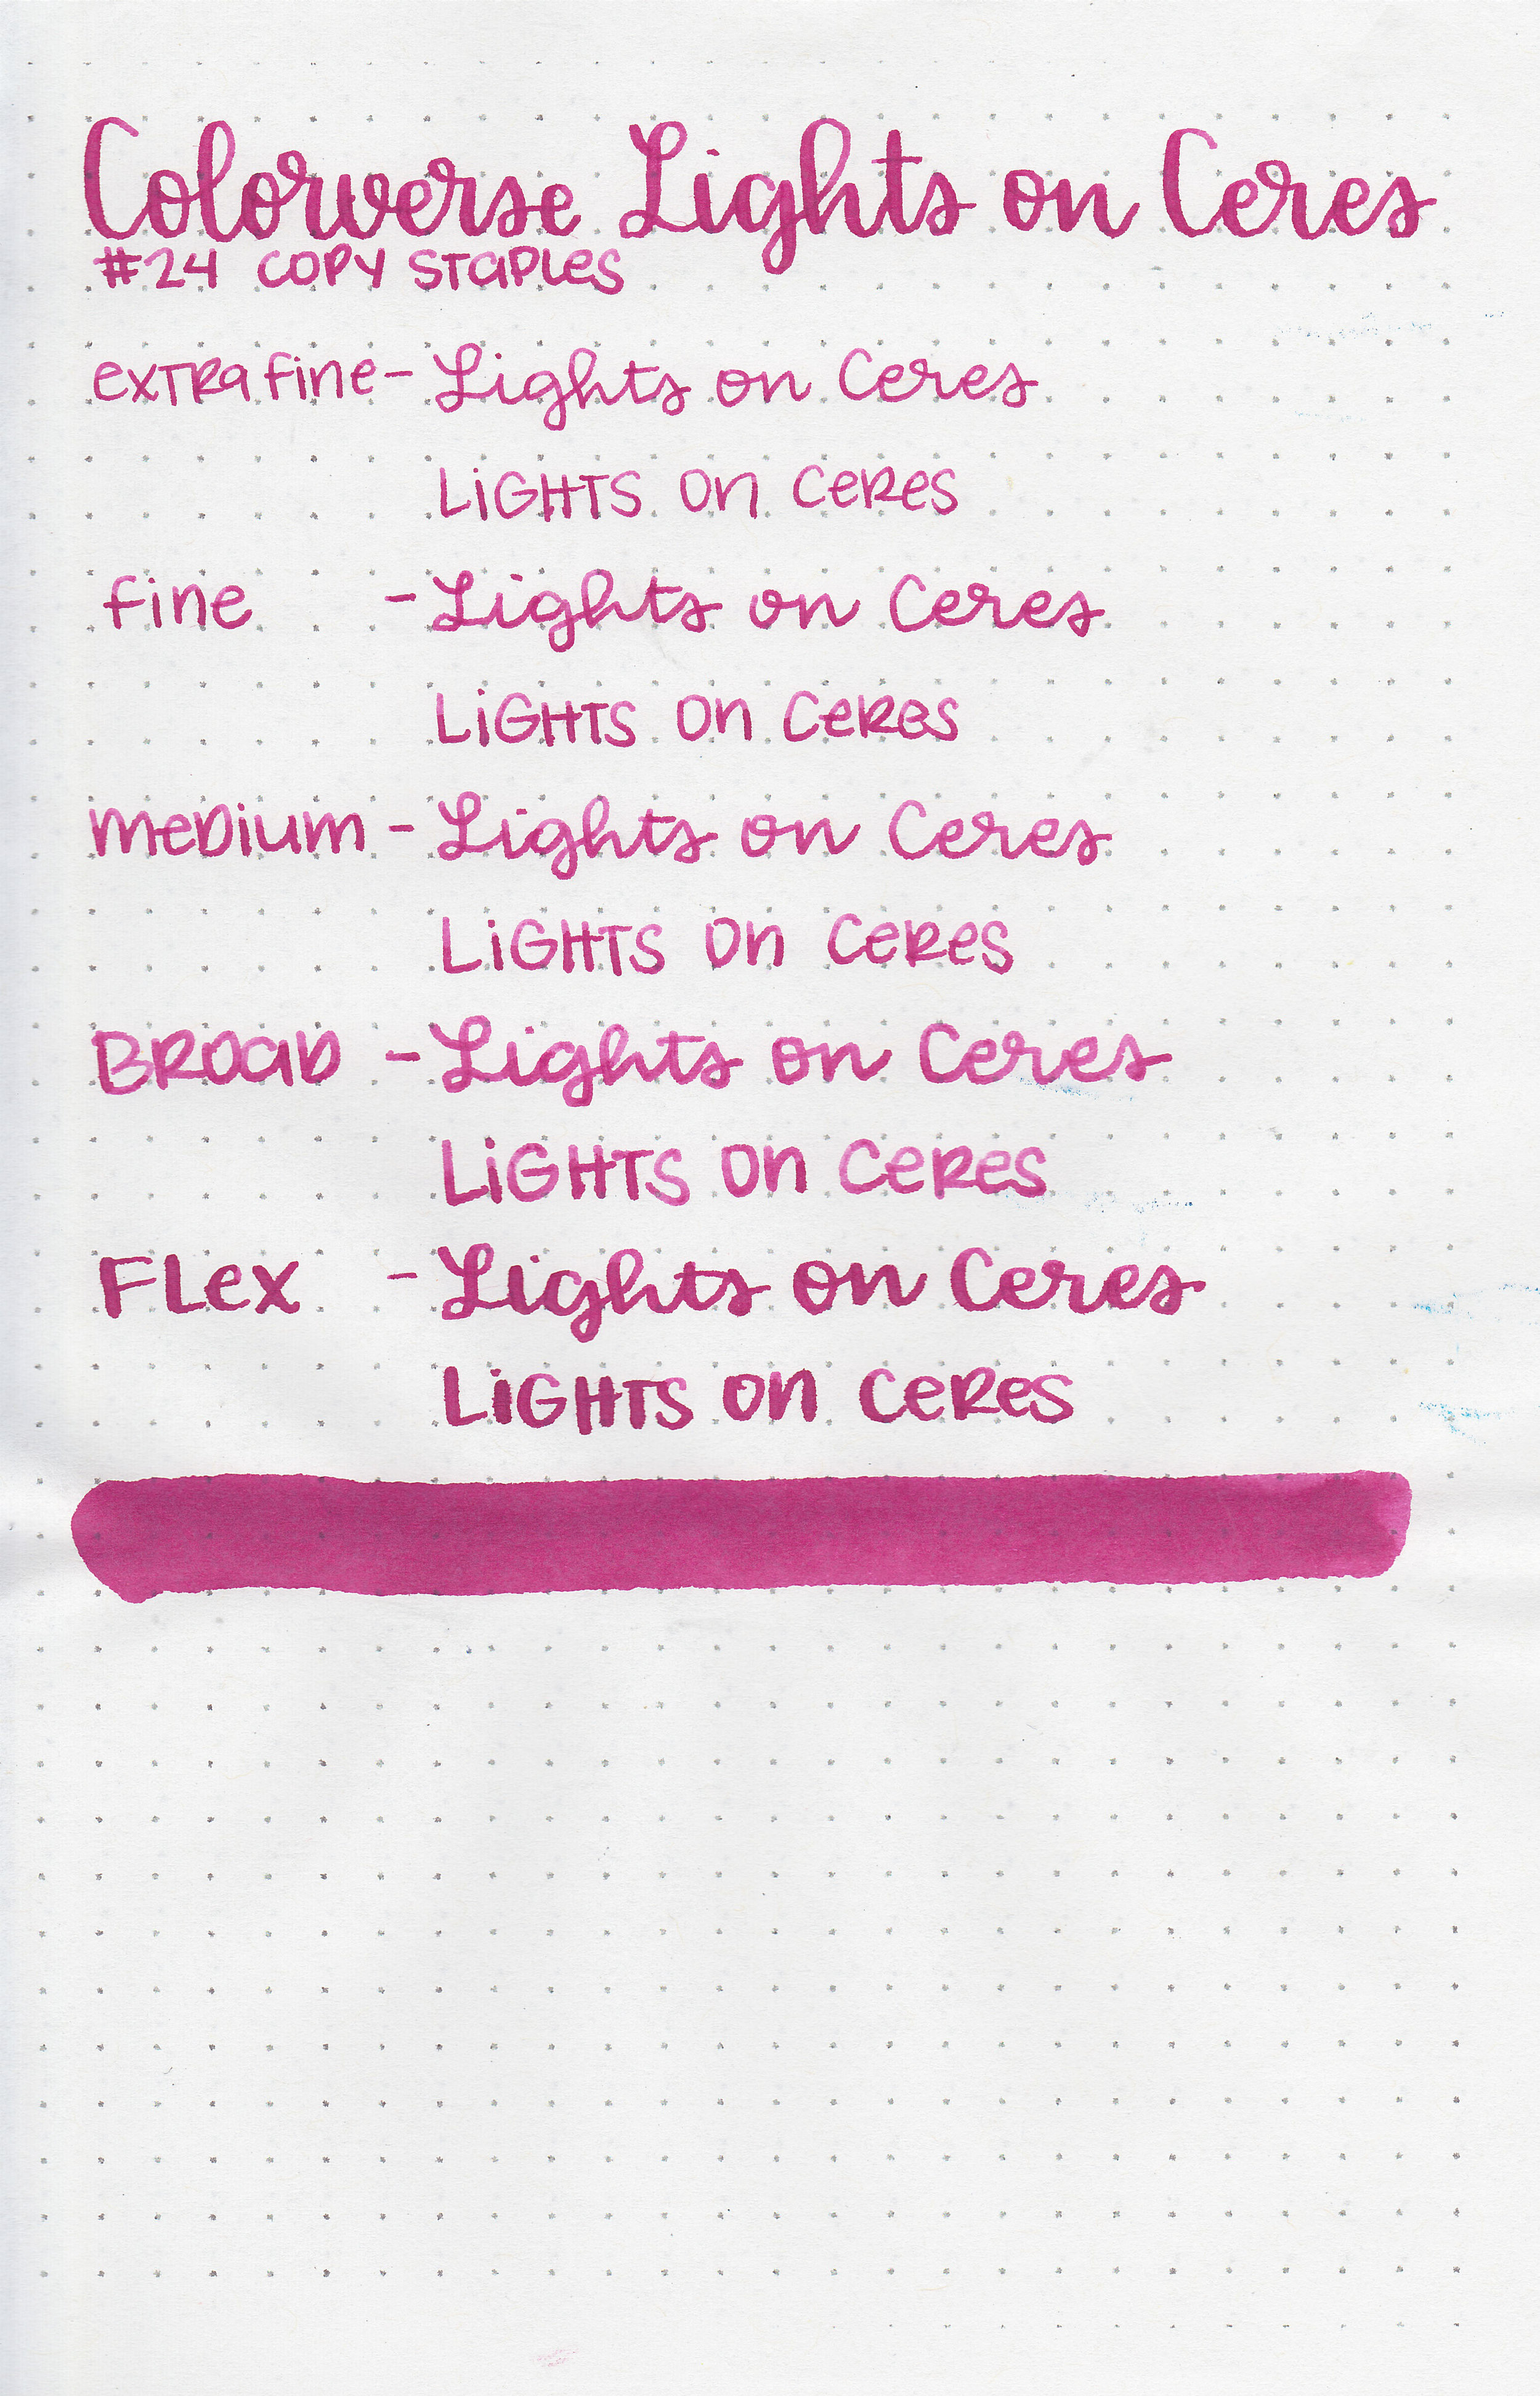 Colorverse Lights on Ceres
#24 COPY STAPLES
extra fine - Lights on Ceres
LiGHTS on CeReS
fine - Lights on Ceres
LiGHTS on CeReS
meDium - Lights on Ceres
LiGHTS on CeReS
BROaD - Lights on Ceres
LiGHTS on CeReS
FLex - Lights on Ceres
LiGHTS on CeReS